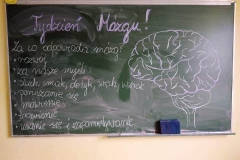 Tydzień Mózgu!
Za co odpowiada mózg?
• rozwój
• za nasze myśli
• słuch, smak, dotyk, węch, wzrok
• poruszanie się
• mówienie
• uczenie się i zapamiętywanie